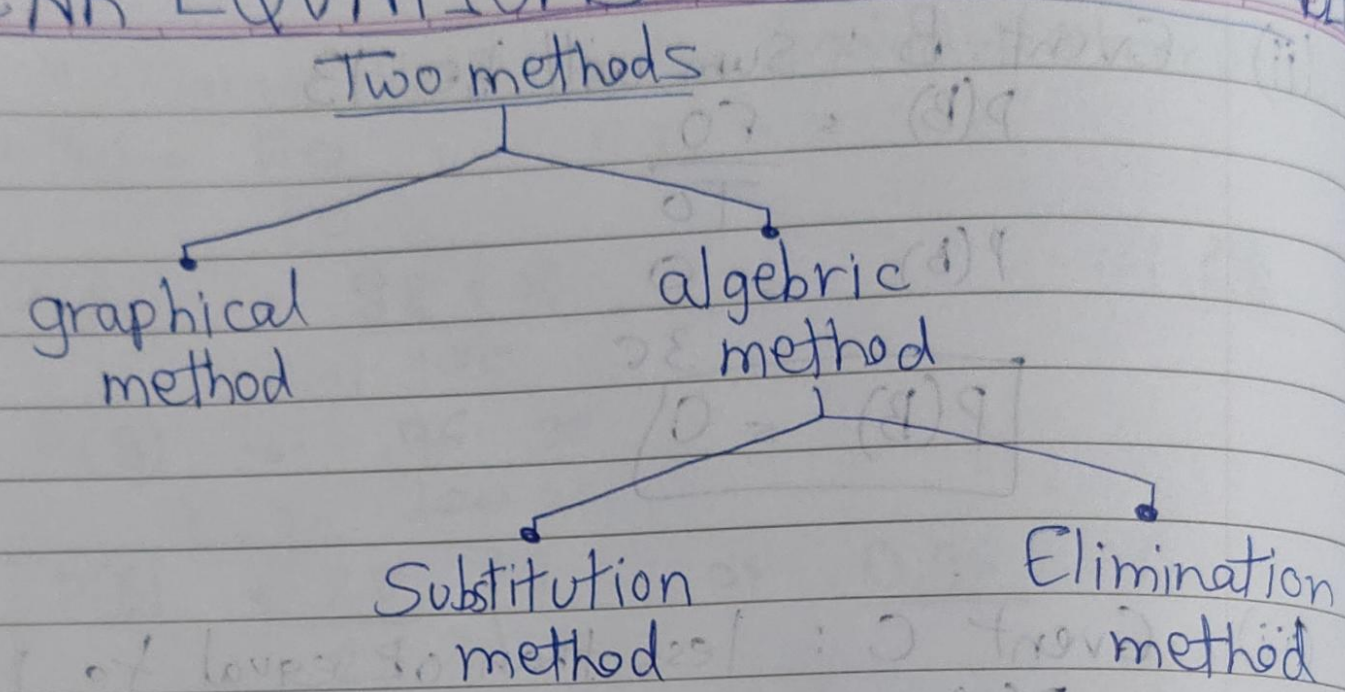 Two methods
graphical
method
algebric
method
Substitution
method
Elimination
method